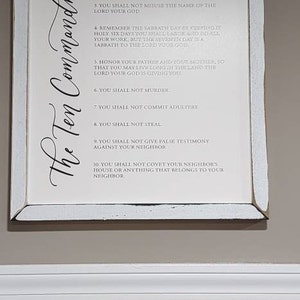 The Ten Commandm
3. YOU SHALL NOT MISUSE THE NAME OF THE
LORD YOUR GOD.
4. REMEMBER THE SABBATH DAY BY KEEPING IT
HOLY. SIX DAYS YOU SHALL LABOR AND DO ALL
YOUR WORK, BUT THE SEVENTH DAY IS A
SABBATH TO THE LORD YOUR GOD.
5. HONOR YOUR FATHER AND YOUR MOTHER, SO
THAT YOU MAY LIVE LONG IN THE LAND THE
LORD YOUR GOD IS GIVING YOU.
6. YOU SHALL NOT MURDER.
7. YOU SHALL NOT COMMIT ADULTERY.
8. YOU SHALL NOT STEAL.
9. YOU SHALL NOT GIVE FALSE TESTIMONY
AGAINST YOUR NEIGHBOR.
10. YOU SHALL NOT COVET YOUR NEIGHBOR'S
HOUSE OR ANYTHING THAT BELONGS TO YOUR
NEIGHBOR.